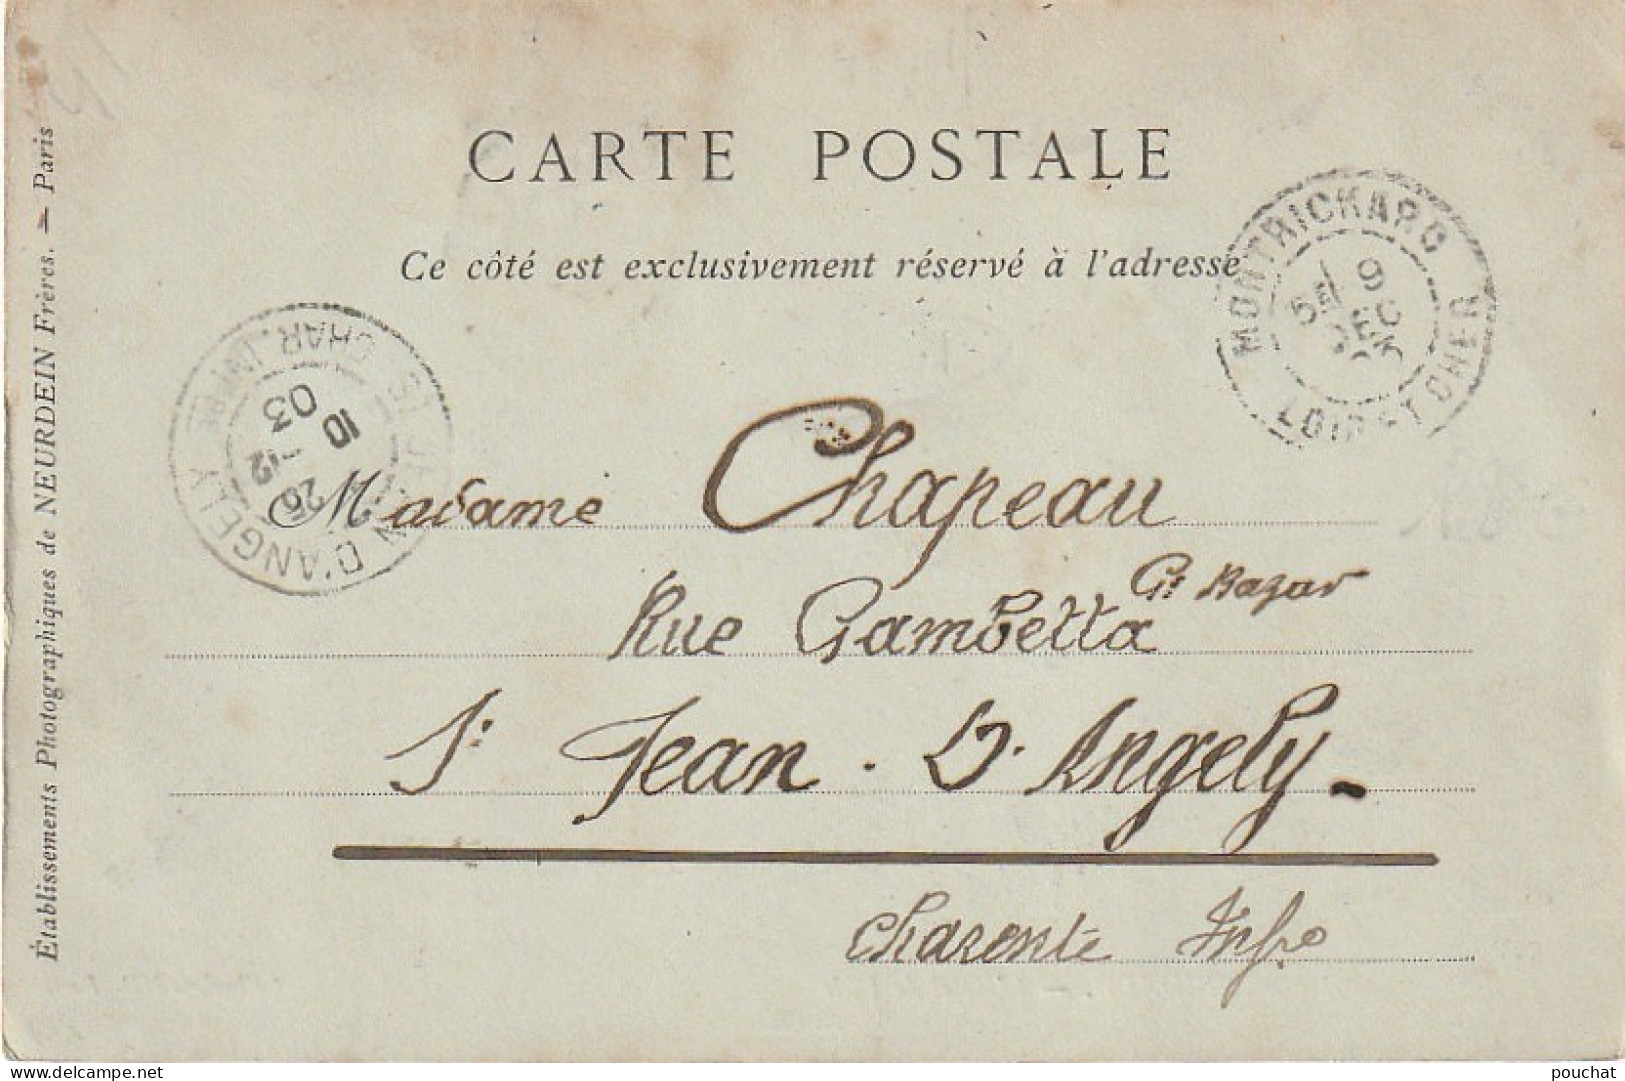 CARTE POSTALE
Ce côté est exclusivement réservé à l'adresse
MONTRICHARD
9
DEC
LOIR ET CHER
ST JEAN D'ANGELY
CHAR. INFRE
10 -12
03
Madame Chapeau
Gd Bazar
Rue Gambetta
St Jean . D. Angely -
Charente Infre
Établissements Photographiques de NEURDEIN Frères. — Paris
pouchat
www.delcampe.net